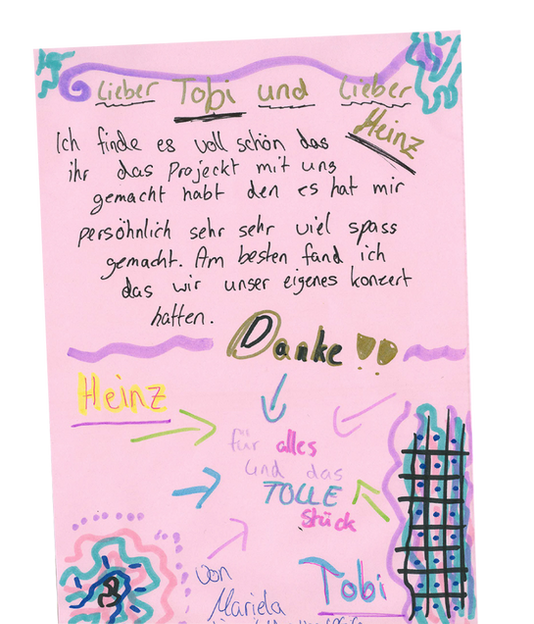 Lieber Tobi und Lieber
Heinz
Ich finde es voll schön das
ihr das Projeckt mit uns
gemacht habt den es hat mir
persöhnlich sehr sehr viel spass
gemacht. Am besten fand ich
das wir unser eigenes konzert
hatten.
Danke!!
Heinz
für alles
und das
TOLLE
stück
von
Mariela
Tobi